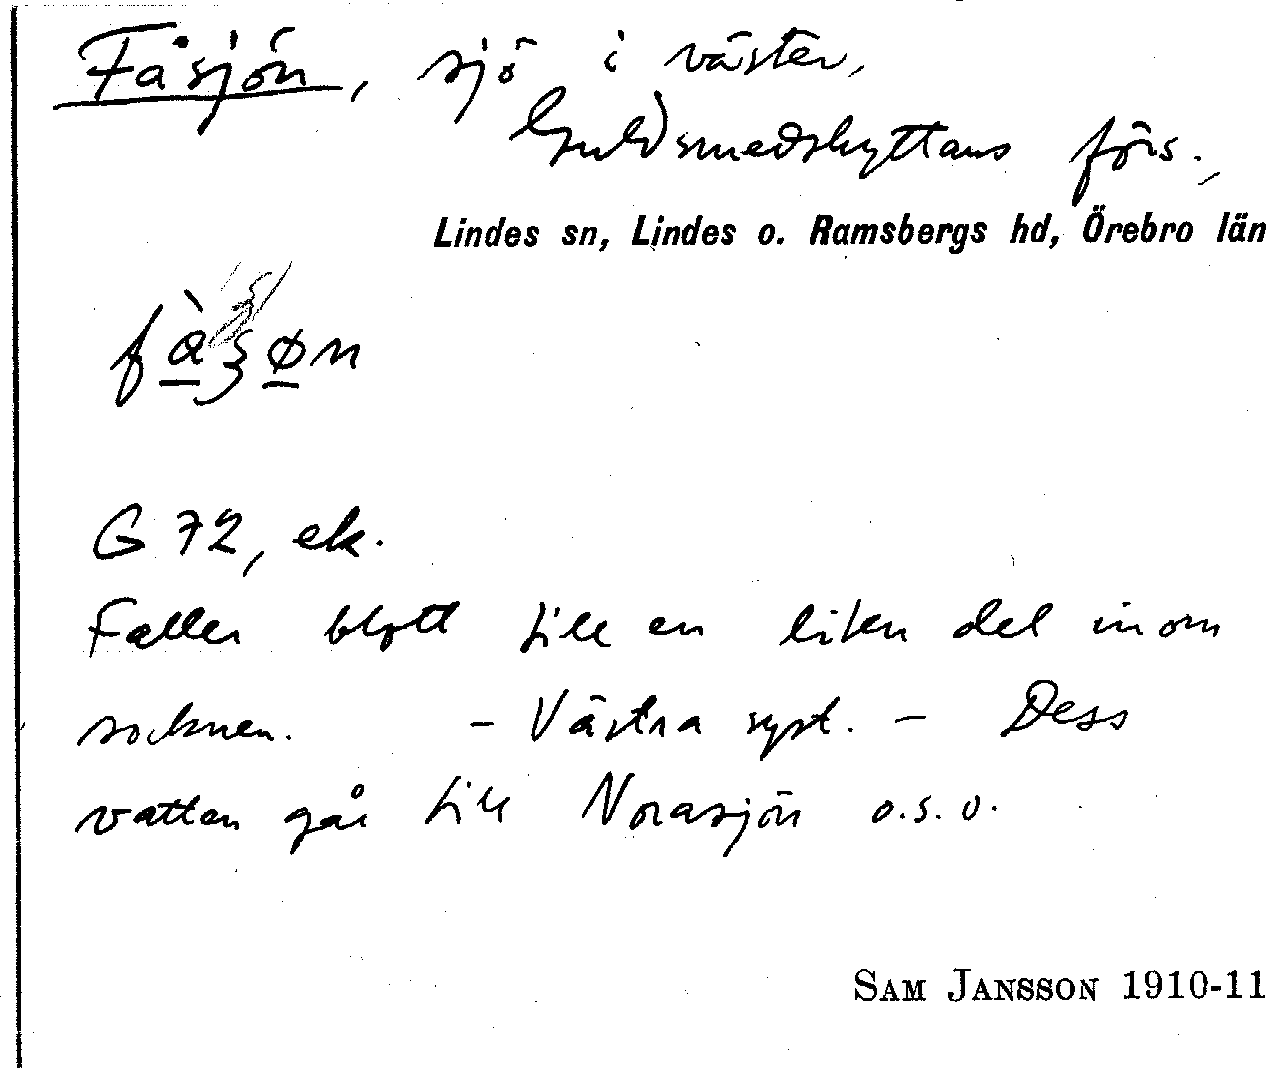 Fåsjön, sjö i väster,
Guldsmedshyttans förs.,
Lindes sn, Lindes o. Ramsbergs hd, Örebro län
G 72, ek.
Faller blott till en liten del inom
socknen. – Västra syst. – Dess
vatten går till Norasjön o.s.v.
SAM JANSSON 1910-11